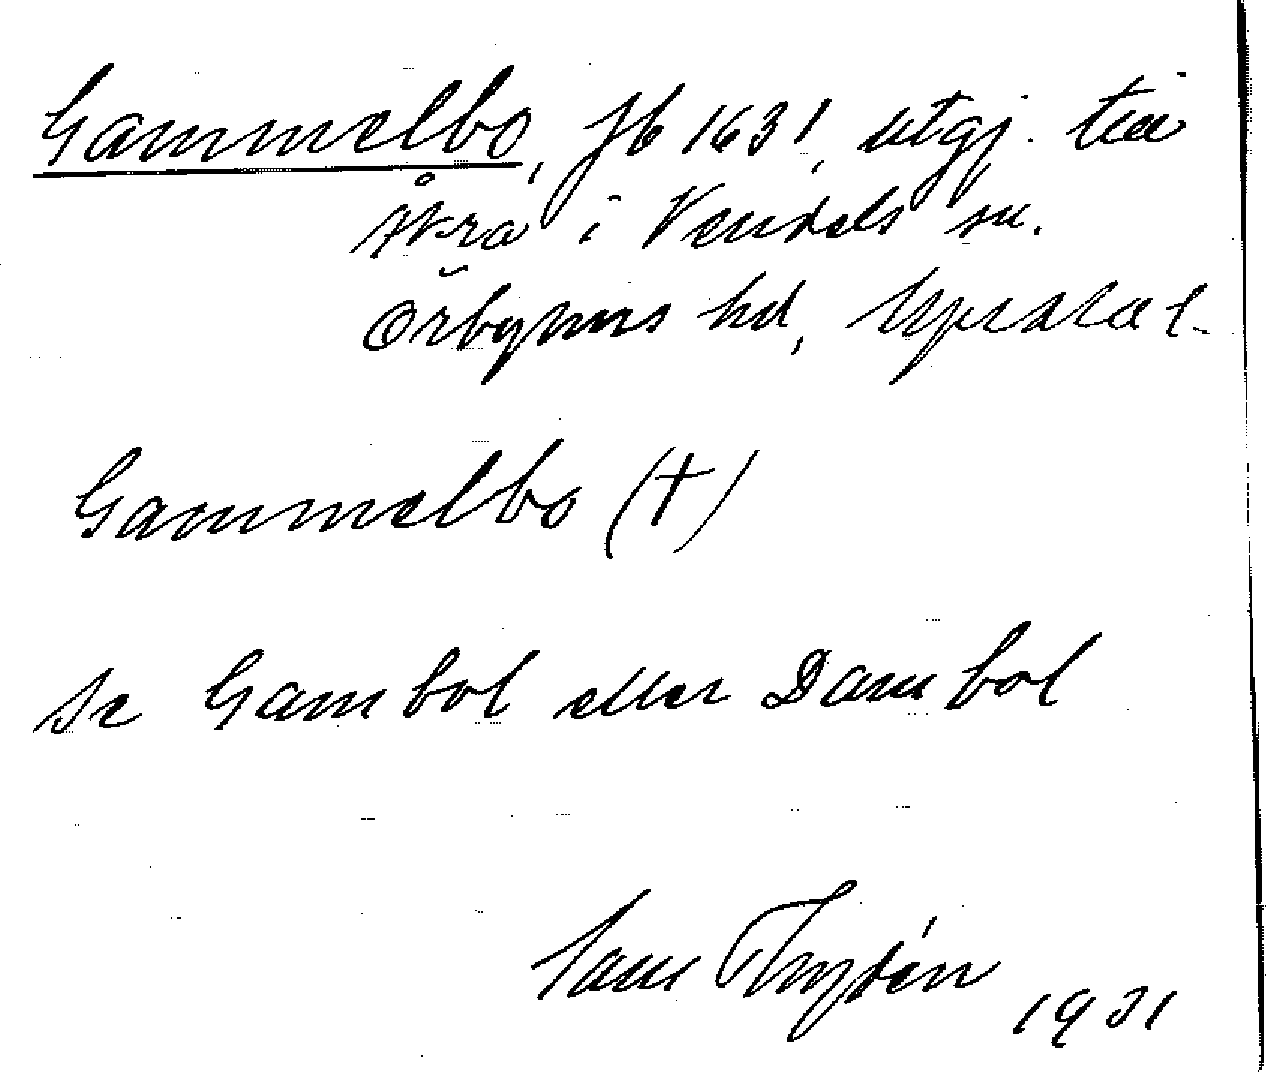 Gammelbo, Jb 1631, utgj. till
Åkra i Vendels sn.
Örbyhus hd, Upsala l.
Gammelbo (†)
se Gambol eller Dambol
Sam Thydén 1931